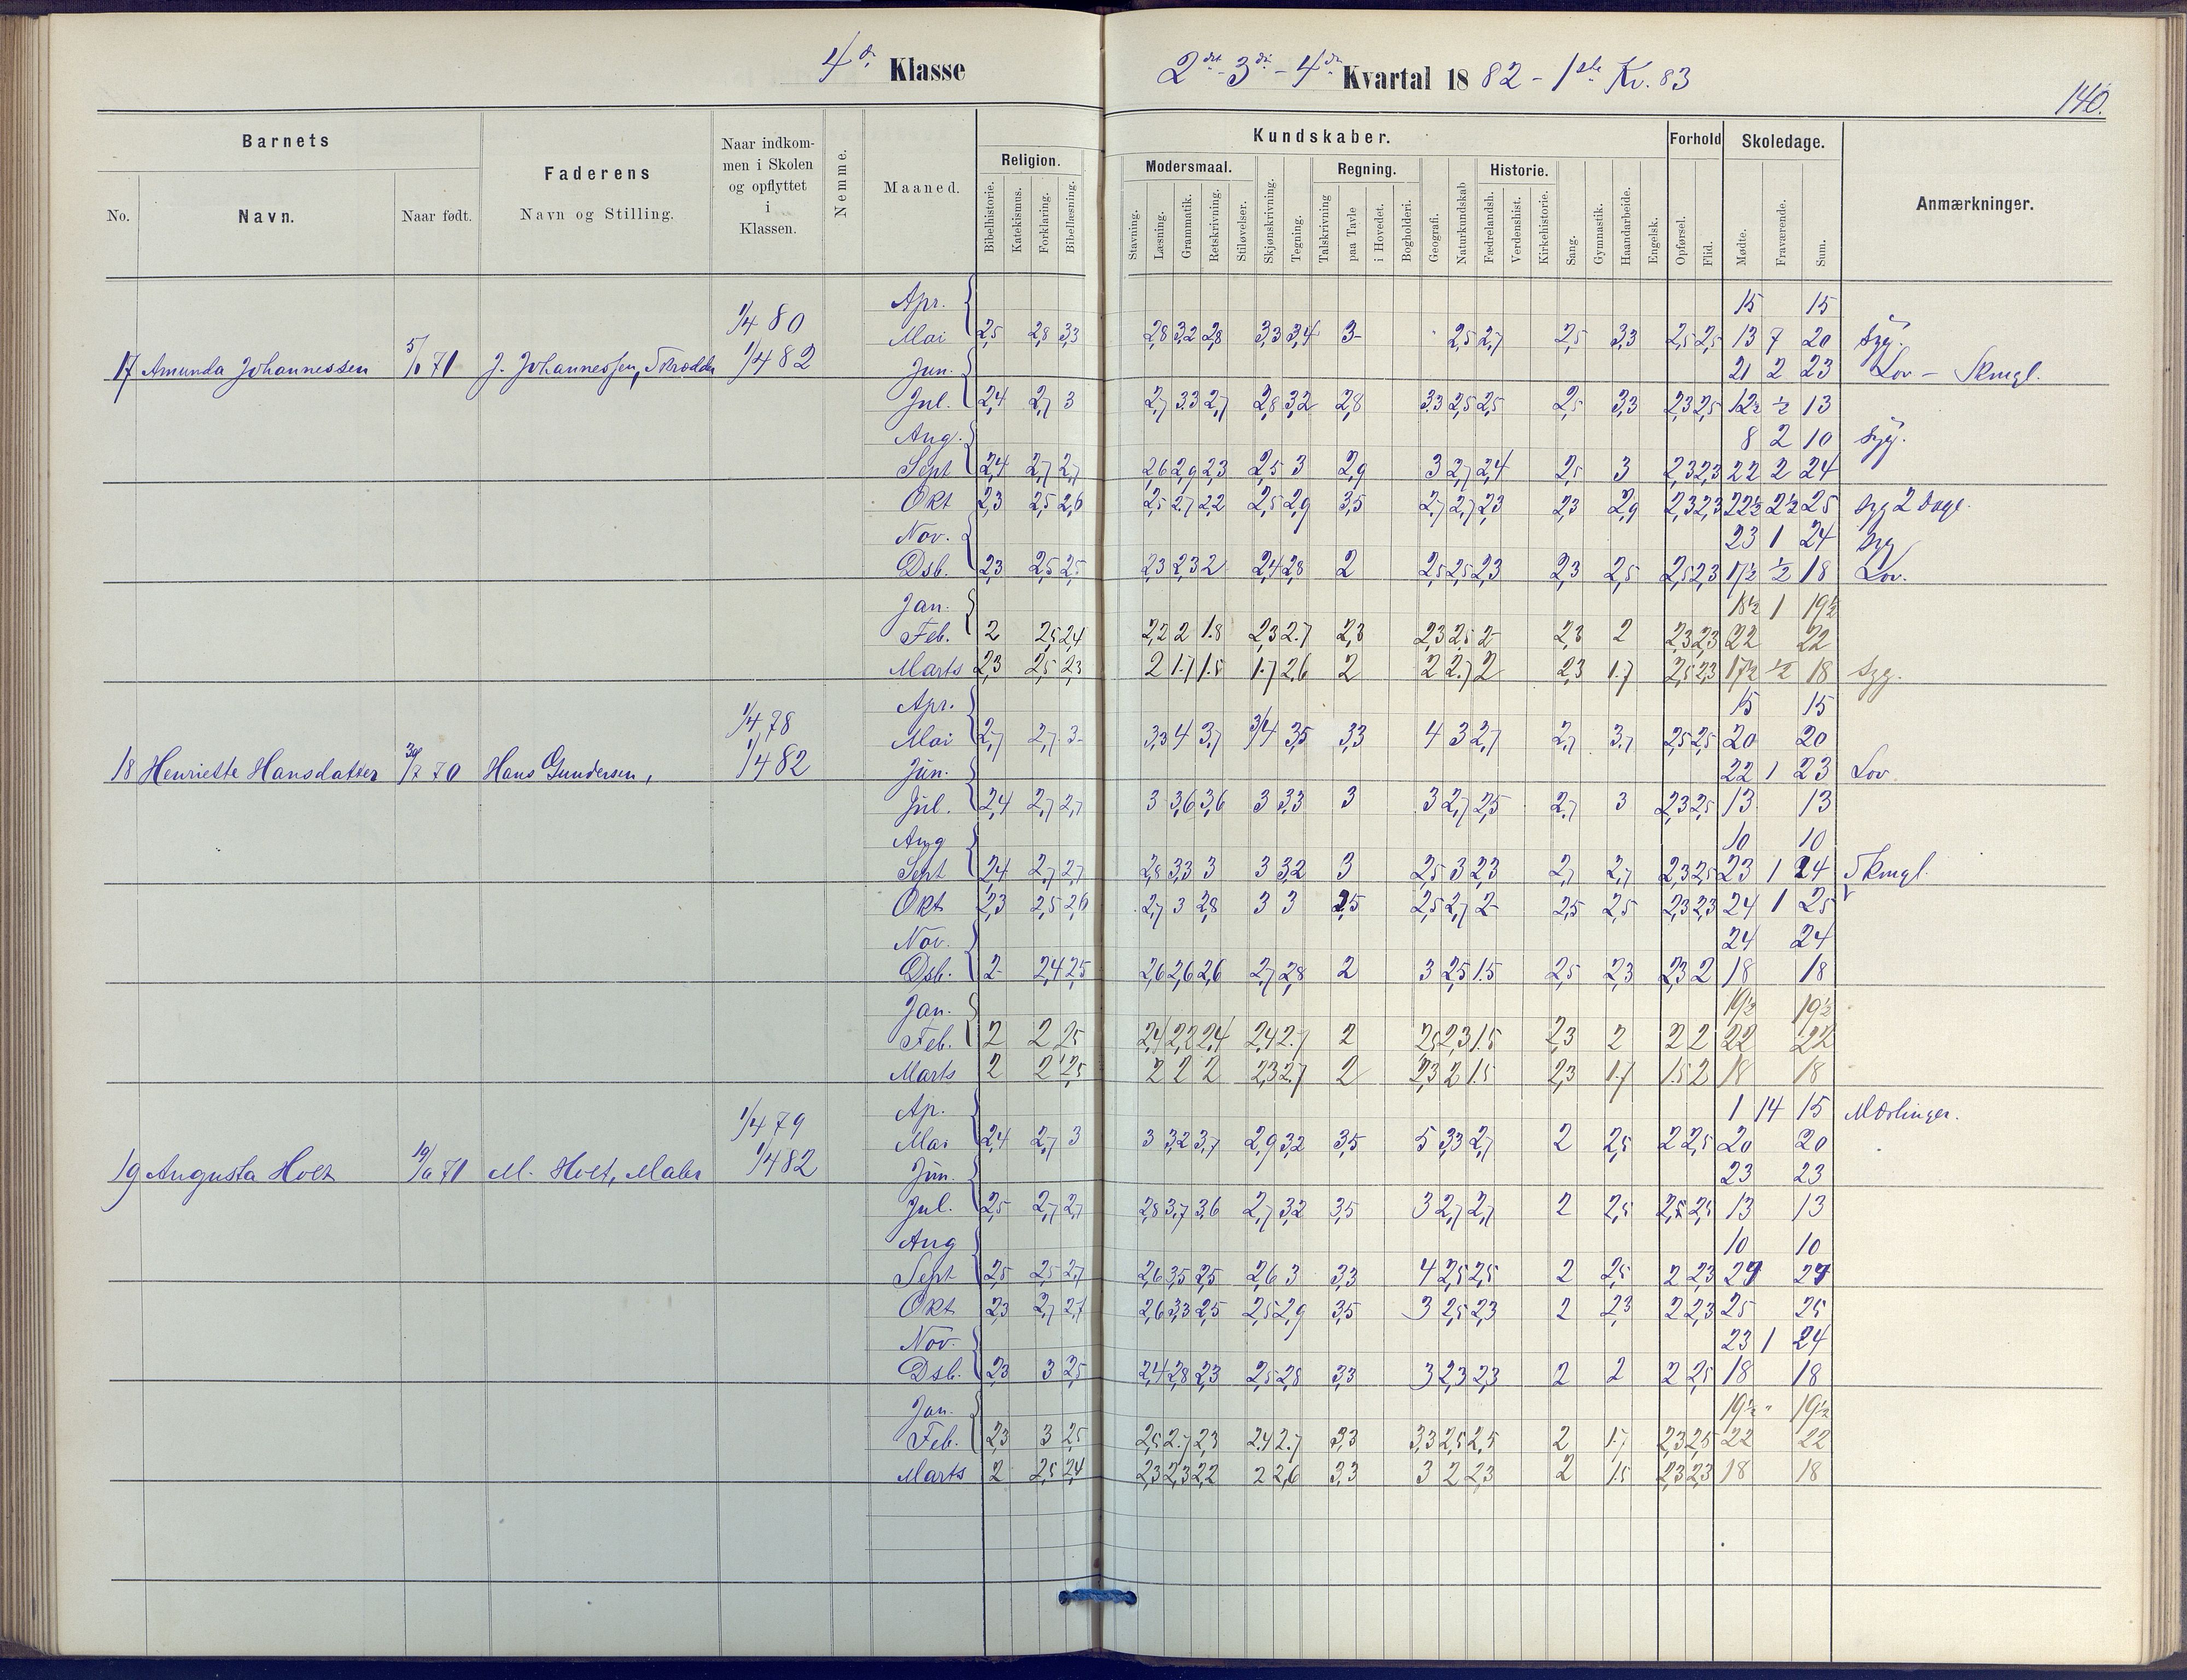 4de Klasse
2det 3die - 4de Kvartal 1882 - 1ste Kv. 83
140.
Barnets
Faderens
Naar indkommen i Skolen og opflyttet i Klassen.
Nemme.
Maaned.
Kundskaber.
Forhold
Skoledage.
Anmærkninger.
Religion.
Modersmaal.
Regning.
Historie.
No.
Navn.
Naar født.
Navn og Stilling.
Bibelhistorie. Katekismus. Forklaring. Bibellæsning. Stavning. Læsning. Grammatik. Retskrivning. Stiløvelser. Skjønskrivning. Tegning. Talskrivning paa Tavle i Hovedet. Bogholderi. Geografi. Naturkundskab Fædrelandsh. Verdenshist. Kirkehistorie. Sang. Gymnastik. Haandarbeide. Engelsk. Opførsel. Flid. Mødte. Fraværende. Sum.
1/4 80
Apr. 15 15
Mai 2,5 2,8 3,3 2,8 3,2 2,8 3,3 3,4 3- 2,5 2,7 2,5 3,3 2,5 2,5 13 7 20 syg.
17 Amunda Johannessen 71 J. Johannessen, Skrædder 1/4 82 Jun. 21 2 23 Lov - Skmgl.
Jul. 2,4 2,7 3 2,7 3.3 2,7 2,8 3,2 2,8 3.3 2,5 2,5 2,5 3,3 2,3 2,5 12½ ½ 13
Aug. 8 2 10 syg.
Sept 2,4 2,7 2,7 2,6 2,9 2,3 2,5 3 2,9 3 2,7 2,4 2,5 3 2,3 2,3 22 2 24
Okt 2,3 2,5 2,6 2,5 2.7 2,2 2,5 2,9 3,5 2,7 2,7 2,3 2,3 2,9 2,3 2,3 22½ 2½ 25 syg 2 dage.
Nov. 23 1 24 syg
Dsb. 2,3 2,5 2,5 2,3 2,3 2 2,4 2,8 2 2,5 2,5 2,3 2,3 2,5 2,5 2,3 17½ ½ 18 Lov.
Jan. 18½ 1 19½
Feb. 2 2,5 2,4 2,2 2 1.8 2,3 2.7 2,3 2,3 2,5 2- 2,3 2 2,3 2,3 22 22
Marts 2,3 2,5 2,3 2 1.7 1.5 1.7 2,6 2 2 2.7 2 2,3 1.7 2,5 2,3 17½ ½ 18 syg.
1/4 78
Apr. 15 15
Mai 2,7 2,7 3- 3,3 4 3,7 3/4 3,5 3,3 4 3 2,7 2,7 3.7 2,5 2,5 20 20
18 Henriette Hansdatter 30/7 70 Hans Gundersen, 1/4 82 Jun. 22 1 23 Lov
Jul. 2,4 2,7 2,7 3 3,6 3,6 3 3,3 3 3 2,7 2,5 2,7 3 2,3 2,5 13 13
Aug 10 10
Sept 2,4 2,7 2,7 2,8 3,3 3 3 3,2 3 2,5 3 2,3 2,7 2,7 2,3 2,5 23 1 24 Skmgl.
Okt 2,3 2,5 2,6 2,7 3 2,8 3 3 2,5 2,5 2,7 2- 2,5 2,5 2,3 2,3 24 1 25
Nov. 24 24
Dsb. 2- 2,4 2,5 2,6 2,6 2,6 2,7 2,8 2 3 2,5 1.5 2,5 2,3 2,3 2 18 18
Jan. 19½ 19½
Feb. 2 2 2,5 2,4 2,2 2,4 2,4 2.7 2 2,5 2,3 1.5 2,3 2 2 2 22 22
Marts 2 2 2,5 2 2 2 2,3 2.7 2 2,3 2 1.5 2,3 1.7 1.5 2 18 18
1/4 79
Ap. 1 14 15 Mæslinger.
Mai 2,4 2,7 3 3 3,2 3,7 2,9 3,2 3,5 5 3,3 2,7 2 2,5 2 2,5 20 20
19 Augusta Holt 71 M. Holt, Maler 1/4 82 Jun. 23 23
Jul. 2,5 2,7 2,7 2,8 3,7 3,6 2,7 3,2 3,5 3 2,7 2,7 2 2,5 2,5 2,5 13 13
Aug 10 10
Sept 2,5 2,5 2,7 2,6 3,5 2,5 2,6 3 3,3 4 2,5 2,5 2 2,5 2 2,3 24 24
Okt 2,3 2,7 2,7 2,6 3,3 2,5 2,5 2,9 3,5 3 2,5 2,3 2 2,3 2 2,3 25 25
Nov. 23 1 24
Dsb. 2,3 3 2,5 2,4 2,8 2,3 2,5 2,8 3,3 3 2,3 2,3 2 2 2 2,5 18 18
Jan. 19½ 19½
Feb. 2,3 3 2,5 2,5 2.7 2,3 2,4 2.7 3,3 3,3 2,5 2,5 2 1.7 2,3 2,5 22 22
Marts 2 2,5 2,4 2,3 2,3 2,2 2 2,6 3,3 3 2 2,3 2 1.5 2,3 2,3 18 18